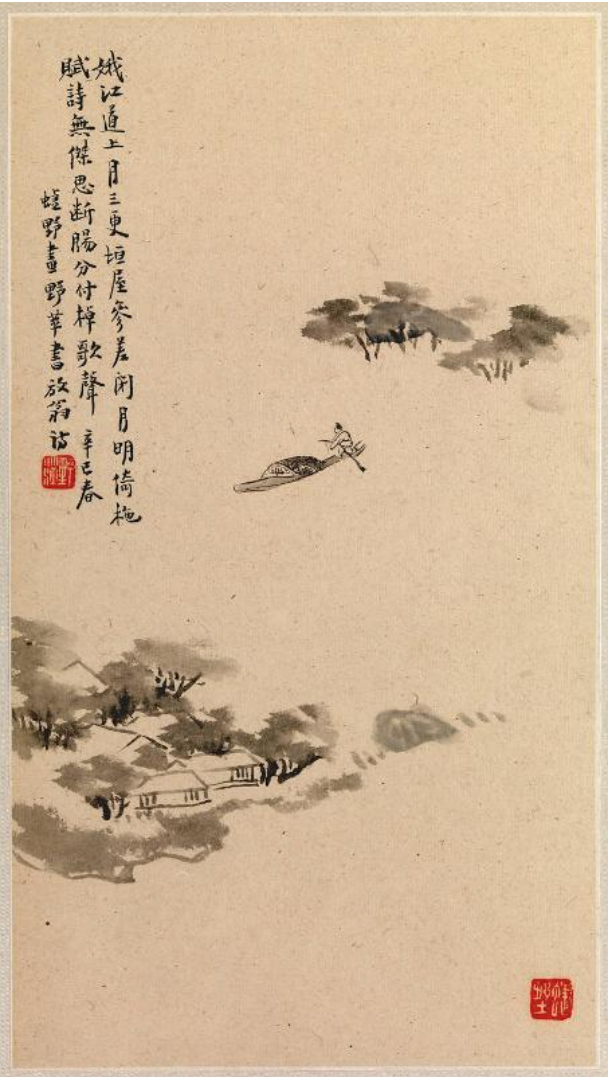 娥江道上月三更垣屋參差閉月明倚柂
賦詩無傑思断腸分付棹歌聲 辛巳春
野畫野書放翁詩